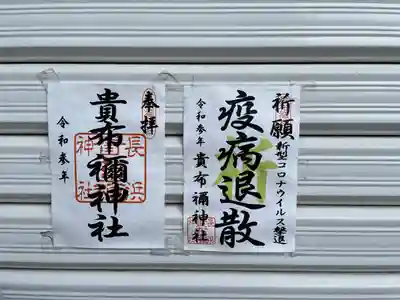 奉拝
貴布禰神社
長浜
神社
令和参年
祈願
新型コロナウイルス撃退
疫病退散
祈
令和参年
貴布禰神社